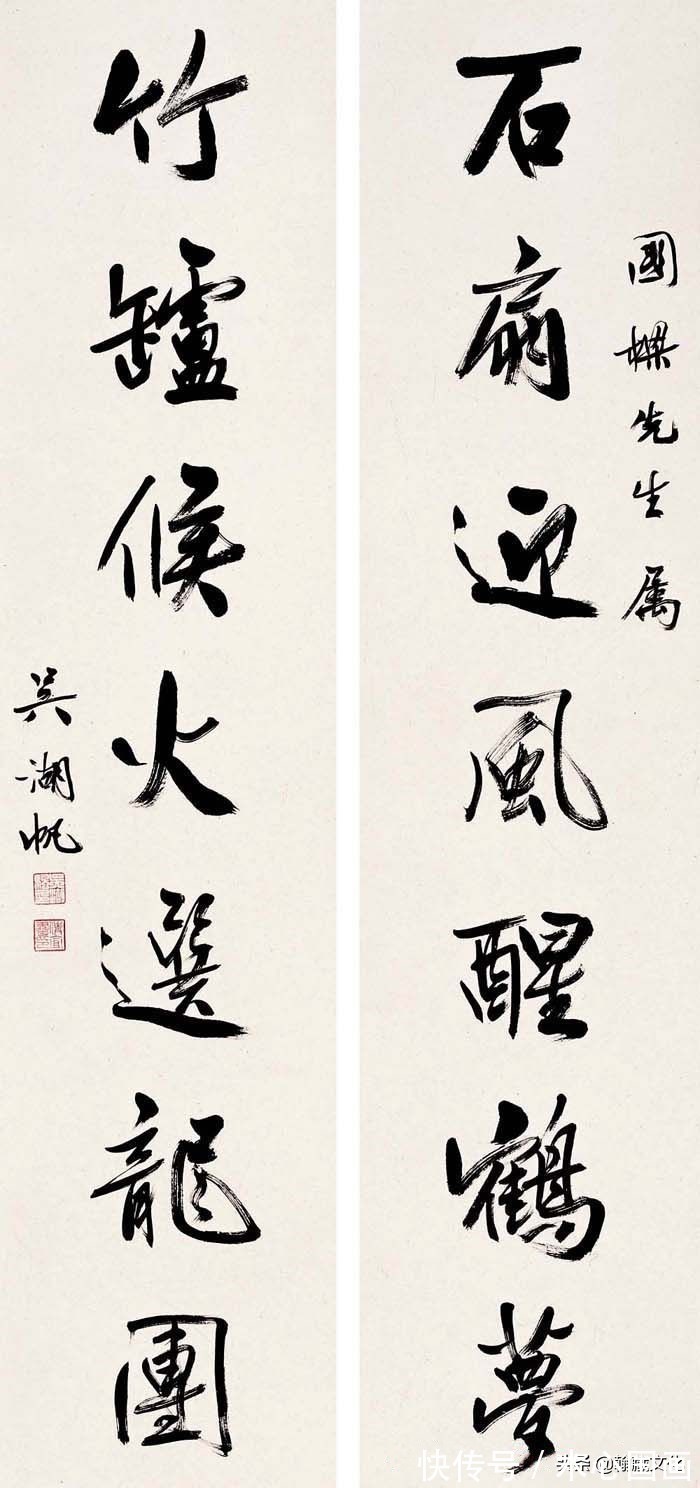 國樑先生属
石扇迎風醒鶴夢
竹罏候火選龍團
吳湖帆
快传号